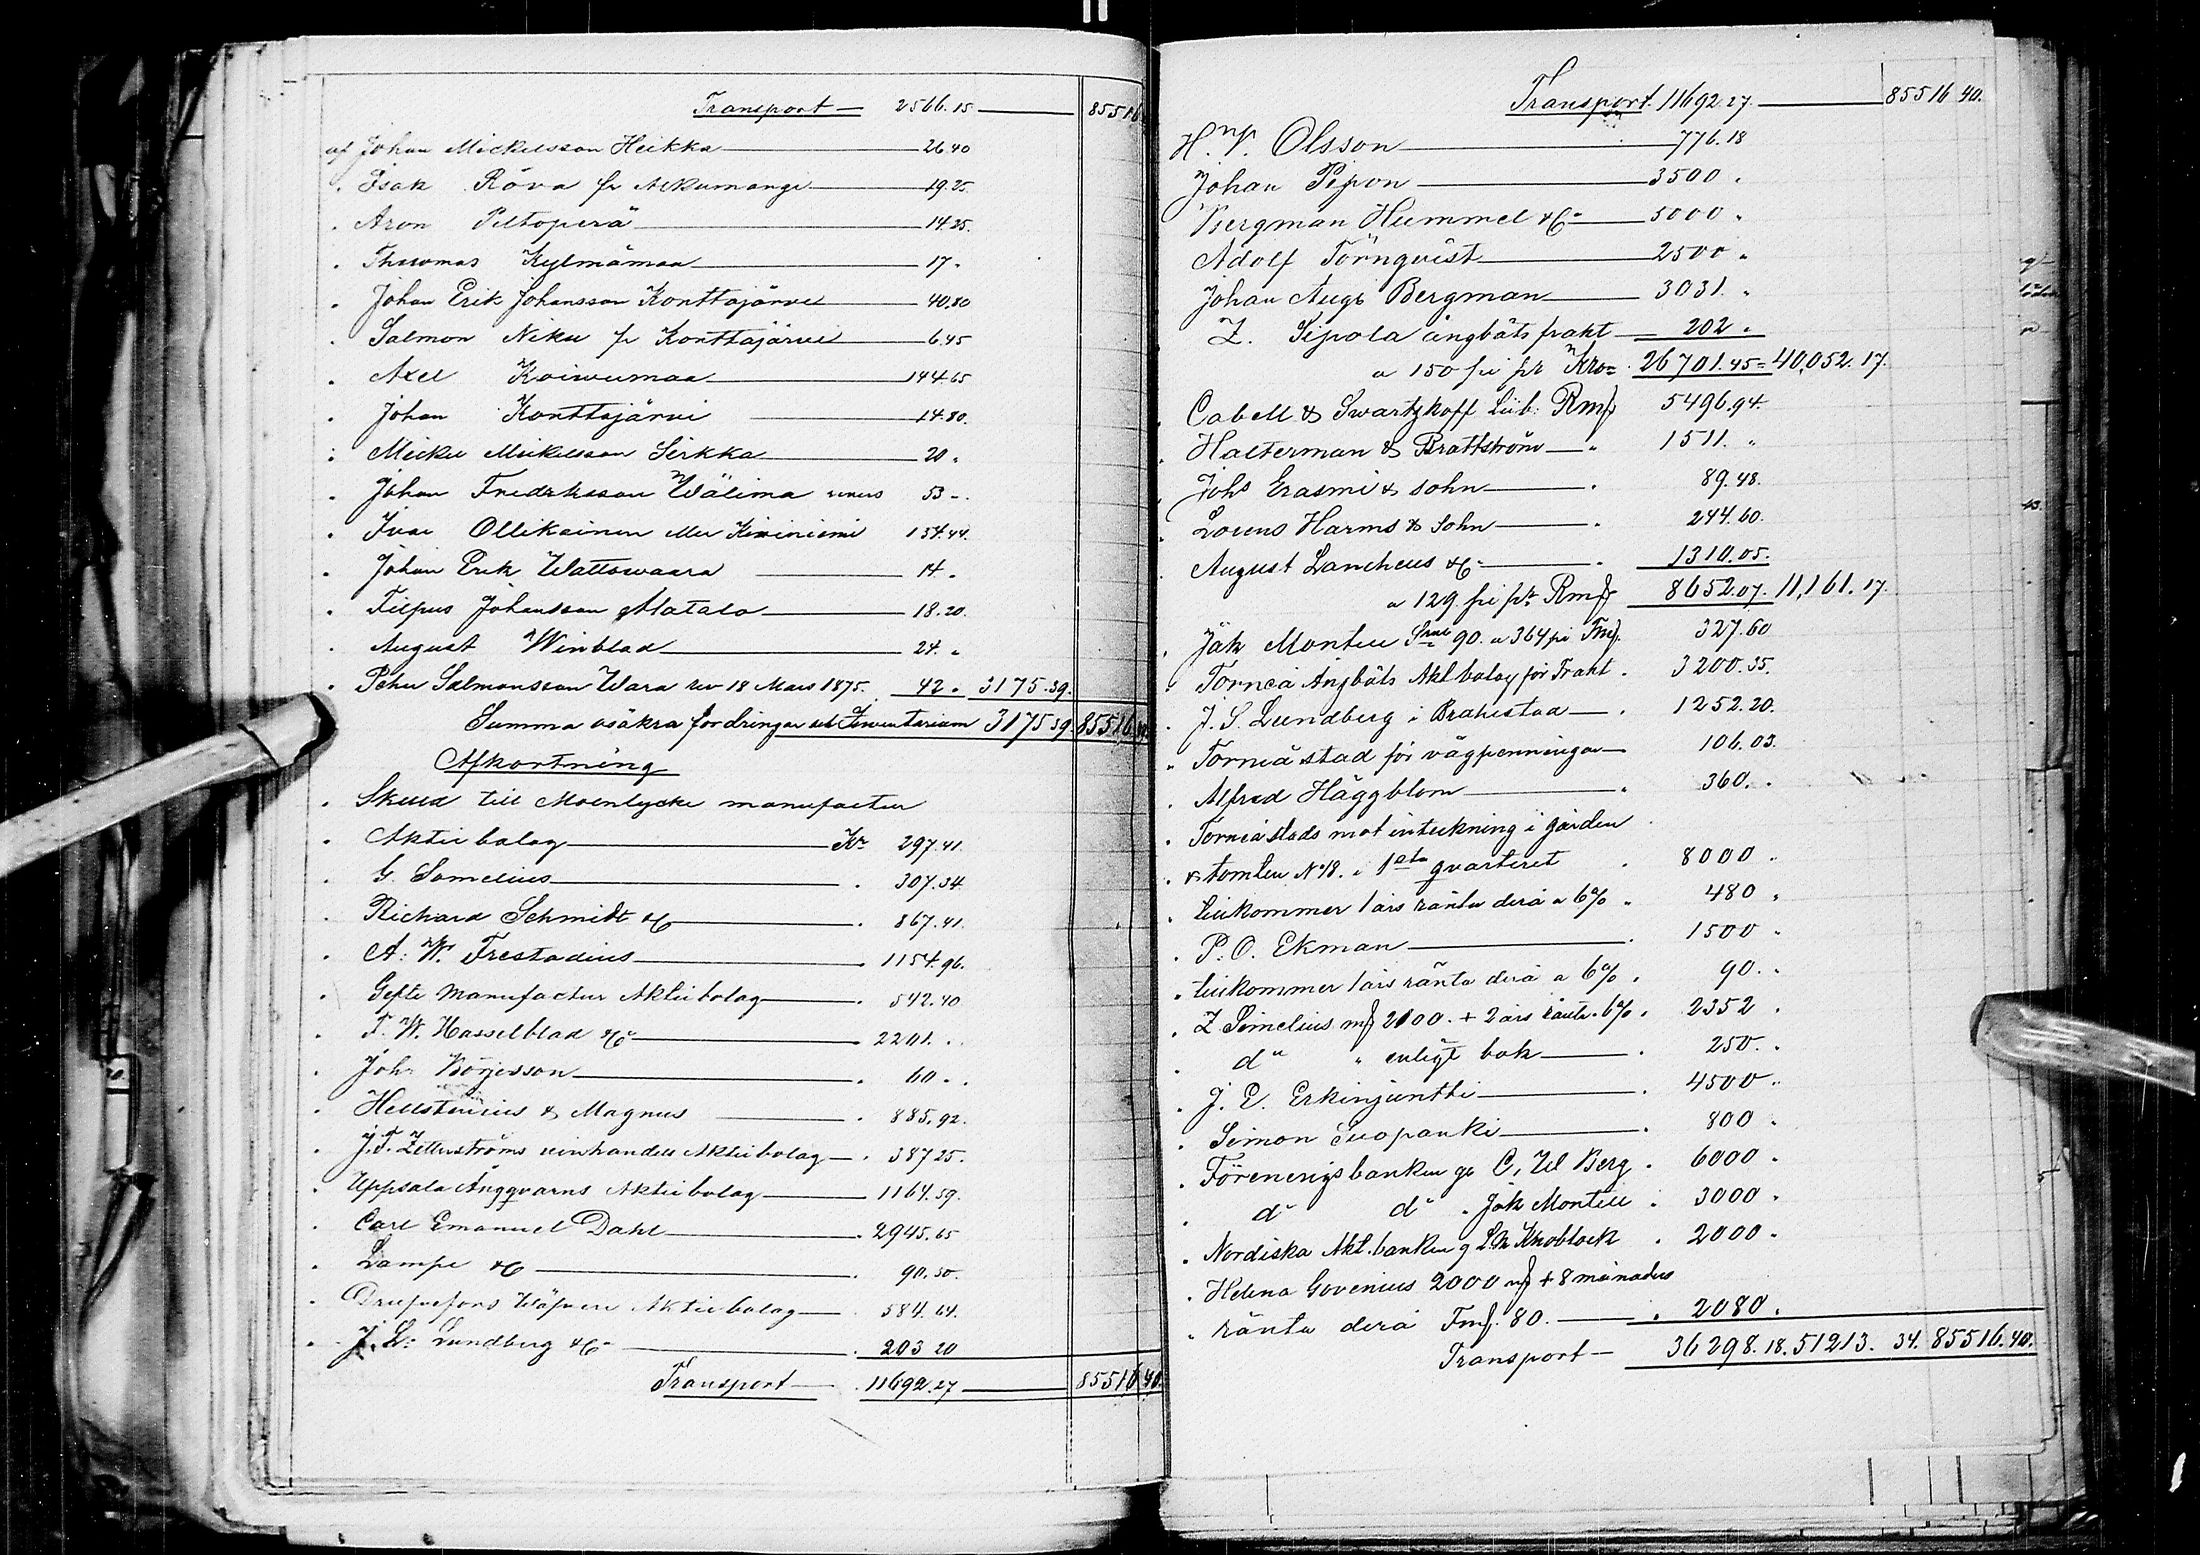 Transport — 2566.15 — 85516
af Johan Mickelsson Heikka — 26.40
" Isak Röva fr Alkumange — 19.25
" Aron Peltoperä — 14.25.
" Thuomas Kylmämaa — 17 "
" Johan Erik Johansson Konttajärvi — 40.80
" Salmon Niku fr Konttajärvi — 6.45
" Axel Koivumaa — 144.65
" Johan Konttajärvi — 14.80.
" Micke Mickelsson Sirkka — 20 "
" Johan Fredriksson Wälima 53 –
" Ivar Ollikainen eller Kiviniemi 134.44.
" Johan Erik Wattowaara — 14 "
" Filpus Johansson Alatalo — 18.20.
" August Winblad — 24. "
" Peter Salmonsson Wara rev 18 Mars 1875. 42 " 3175.39.
Summa osäkra fordringar ut Inventarium 3175.39 85516.40
Afkortning
" Skuld till Moenlycke manufactur
" Aktie bolag — Kr 297.41.
" G. Somelius — " 307.34
" Richard Schmidt & C — " 867.41.
" A. W. Frestadius — " 1154.96.
" Gefle Manufactur Aktie bolag — " 542.40
" F. W. Hasselblad & Co — 2201. "
" Joh: Börjesson — " 60 "
" Hellstenius & Magnus — " 885.92.
" J. F. Zetterströms vinhandels Aktie bolag — " 387.25.
" Uppsala Ångqvarns Aktie bolag — 1164.59.
" Carl Emanuel Dahl — " 2945.65
" Lampe & C — " 90.50.
" Drufvefors Wäfveri Aktie bolag — " 584.64.
" J. L: Lundberg & C — " 203 20
Transport — 11692.27 — 85516 40.
Transport. 11692.27. — 85516 40.
H. W. Olsson — 776.18
Johan Pipon — 3500 "
Bergman Hummel & Co — 5000 "
Adolf Törnqvist — 2500 "
Johan Augt Bergman — 3031. "
Z. Sipola ångbåts frakt — 202 "
a 150 pi pr Kro= 26701.45 = 40,052.17.
" Cabell & Swartzkoff Lüb: Rmf 5496.94.
" Halterman & Brattström — " 1511. "
" Johs Erasmi & sohn — " 89.48.
" Lorens Harms & Sohn — " 244.60.
" August Lancheus & C — " 1310.05.
a 129 pi pr Rmf 8652.07. 11,161.17.
" Jak Montell 90. a 364 pi Fmf. 327.60
" Torneå Ångbåts Akt bolag för Frakt " 3200.35.
" J. S. Lundberg i Brahestad — " 1252.20.
" Torneå stad för vägpenningar — 106.03.
" Alfred Häggblom — " 360. "
" Torneå stads mot inteckning i gården
" & tomten No 18. i 1sta qvarteret " 8000 "
" tillkommer 1 års ränta derå a 6% " 480 "
" P. O. Ekman — " 1500 "
" tillkommer 1 års ränta derå a 6% " 90. "
" Z Simelius mf 2100. + 2 års ränta 6% " 2352 "
" do " enligt bok — " 250. "
" J. E. Erkinjuntti — " 4500 "
" Simon Suopanki — " 800 "
" Förenings banken gr C. W Berg " 6000 "
" do do " Jak Montell " 3000 "
" Nordiska Akt. banken g Knoblock " 2000 "
" Helena Govenius 2000 mf + 8 månaders
" ränta derå Fmf. 80. — " 2080 "
Transport — 36298.18. 51213. 34. 85516.40.